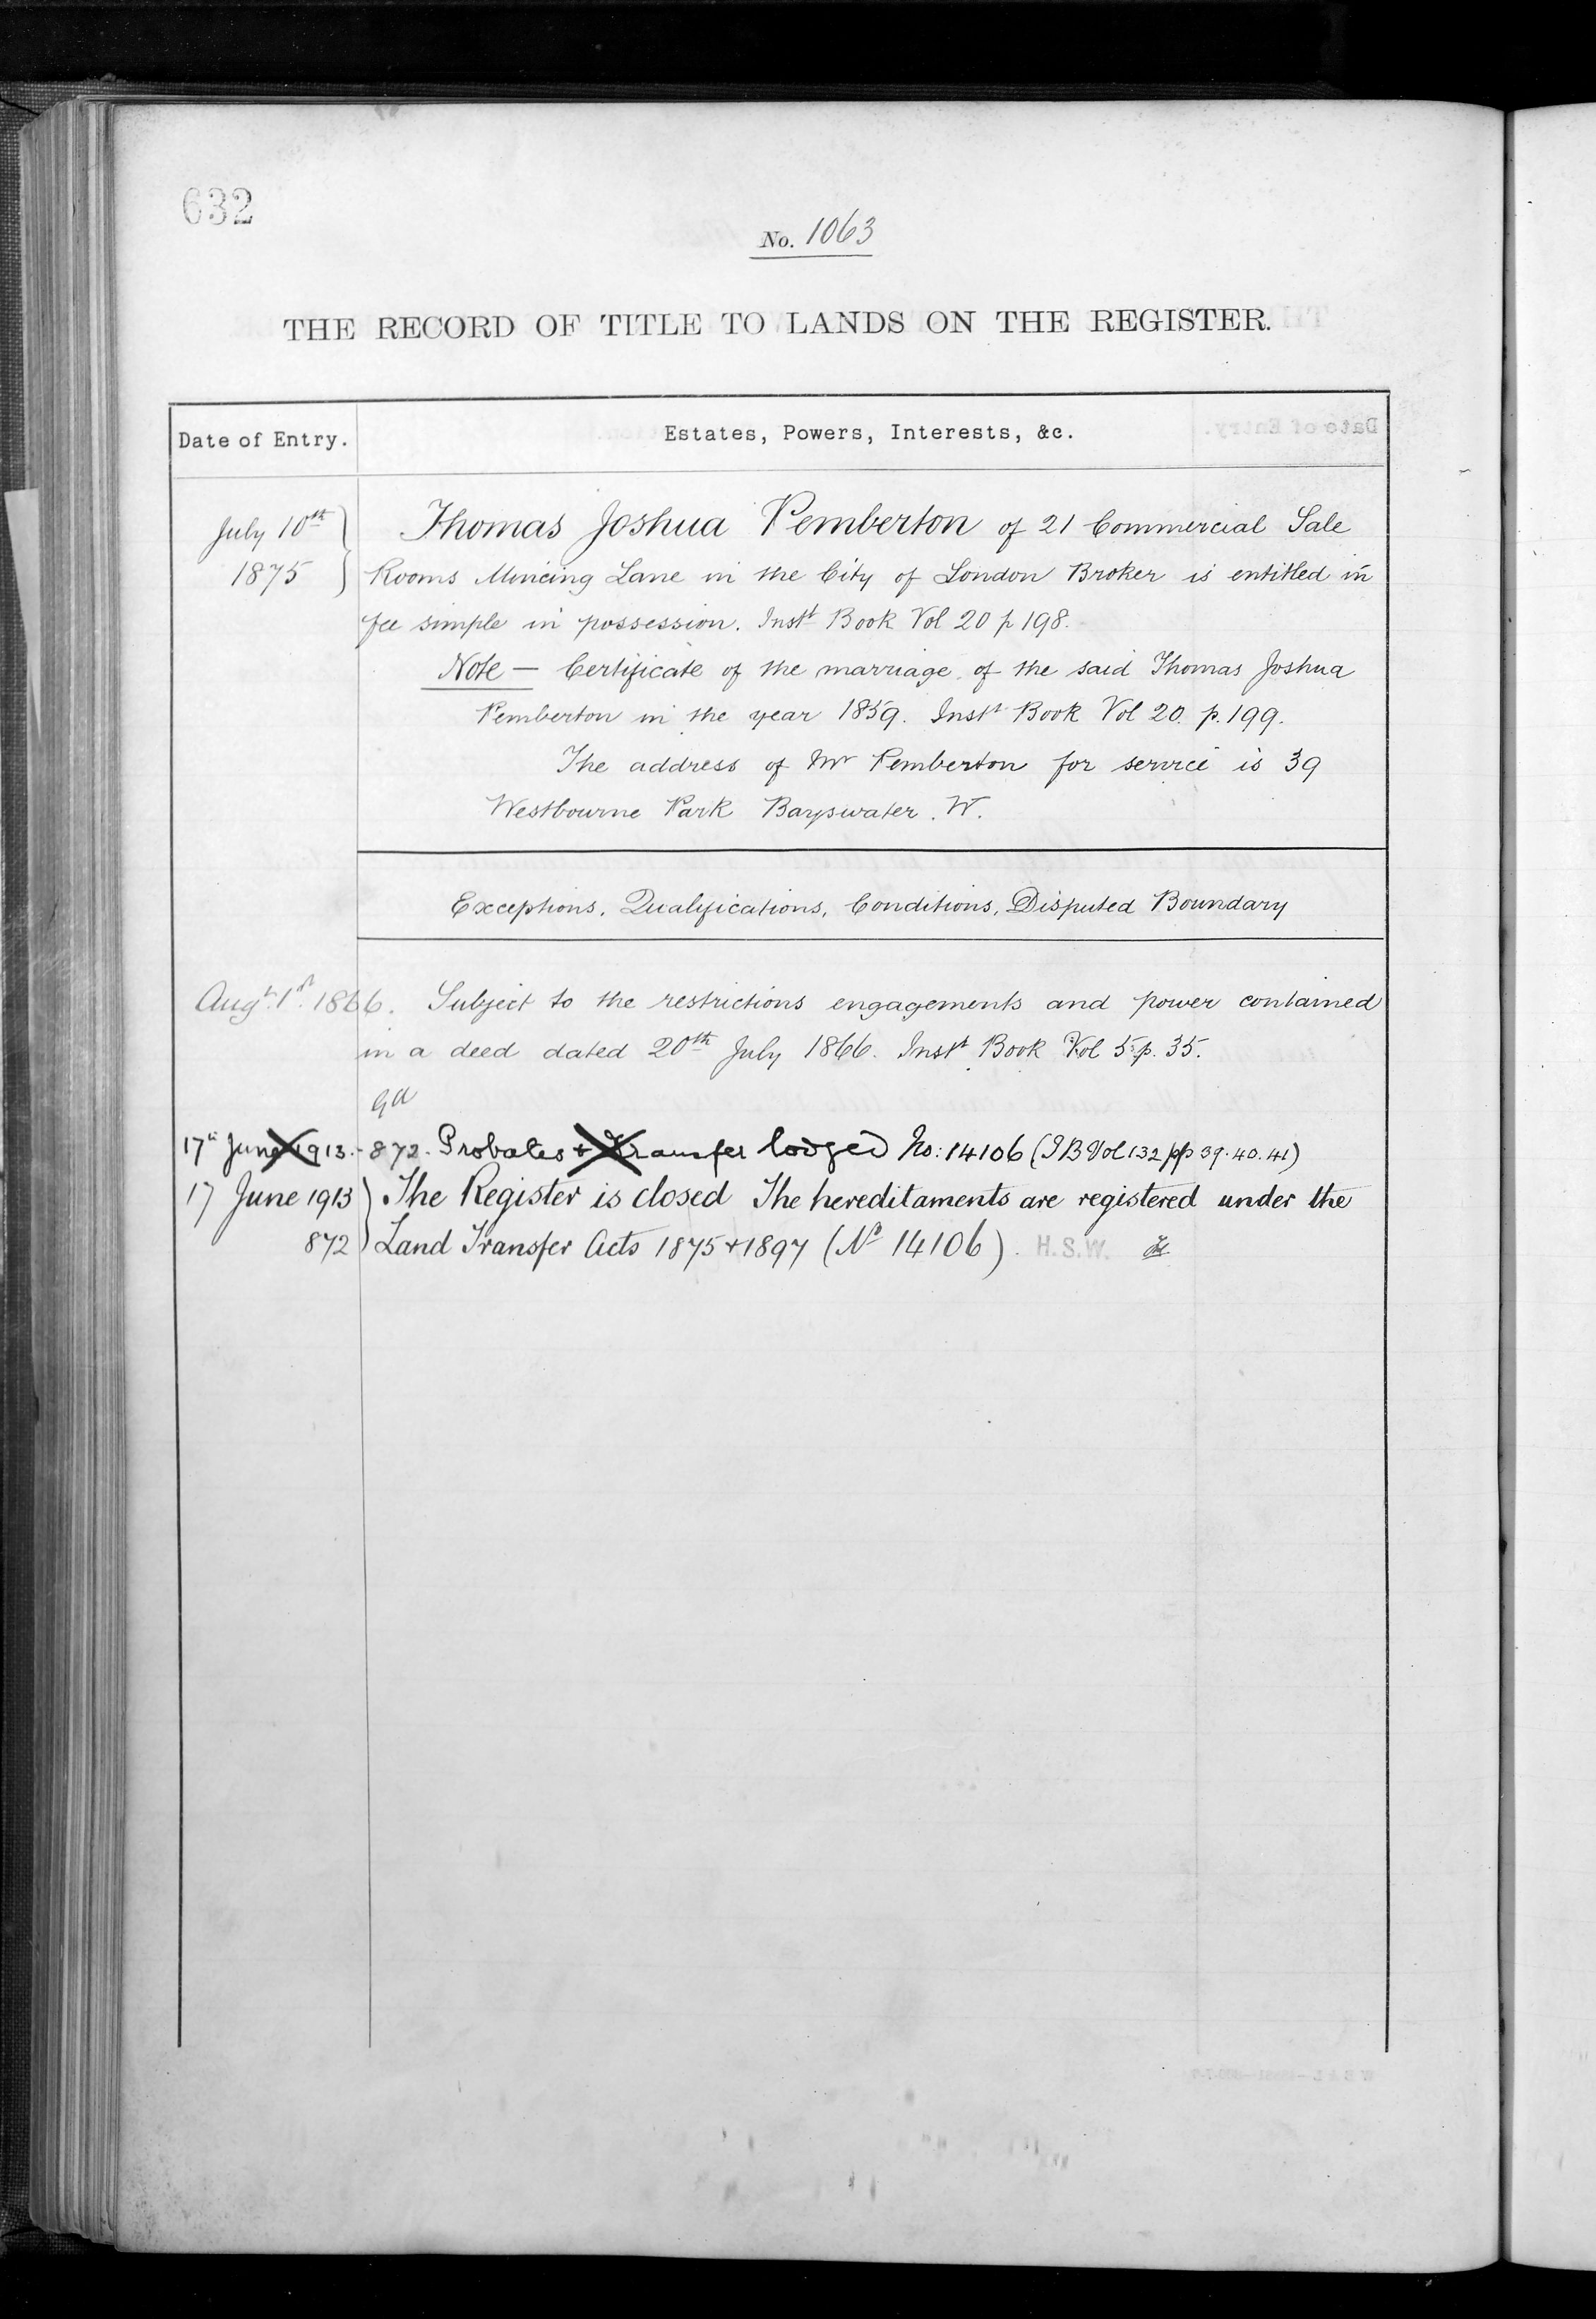 632
No. 1063
THE RECORD OF TITLE TO LANDS ON THE REGISTER.
Date of Entry. Estates, Powers, Interests, &c.
July 10th Thomas Joshua Pemberton of 21 Commercial Sale
1875 Rooms Mincing Lane in the City of London Broker is entitled in
fee simple in possession. Instt Book Vol 20 p 198.
Note — Certificate of the marriage of the said Thomas Joshua
Pemberton in the year 1859. Instt Book Vol 20. p. 199.
The address of Mr Pemberton for service is 39
Westbourne Park Bayswater. W.
Exceptions, Qualifications, Conditions, Disputed Boundary
Augt 1st 1866. Subject to the restrictions engagements and power contained
in a deed dated 20th July 1866. Instt Book Vol 5 p. 35.
17th June 1913. - 872. Probates + Transfer lodged No: 14106 (IB Vol 132 pp 39. 40. 41)
17 June 1913 The Register is closed The hereditaments are registered under the
872 Land Transfer Acts 1875 + 1897 (No 14106). H.S.W.